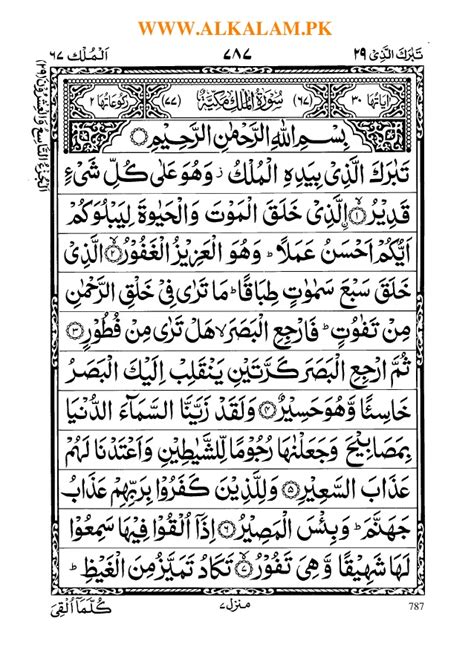 WWW.ALKALAM.PK
تَبٰرَكَ الَّذِیْ ٢٩ ٧٨٧ اَلْمُلْك ٦٧
اٰیَاتُهَا ٣٠ (٦٧) سُوْرَةُ الْمُلْكِ مَكِّیَّةٌ (٧٧) رُكُوْعَاتُهَا ٢
بِسْمِ اللّٰهِ الرَّحْمٰنِ الرَّحِیْمِ
تَبٰرَكَ الَّذِیْ بِیَدِهِ الْمُلْكُ ز وَهُوَ عَلٰی كُلِّ شَیْءٍ
قَدِیْرُ ۙ﴿١﴾ اِ۟لَّذِیْ خَلَقَ الْمَوْتَ وَالْحَیٰوةَ لِیَبْلُوَكُمْ
اَیُّكُمْ اَحْسَنُ عَمَلًا ؕ وَهُوَ الْعَزِیْزُ الْغَفُوْرُ ۙ﴿٢﴾ الَّذِیْ
خَلَقَ سَبْعَ سَمٰوٰتٍ طِبَاقًا ؕ مَا تَرٰی فِیْ خَلْقِ الرَّحْمٰنِ
مِنْ تَفٰوُتٍ ؕ فَارْجِعِ الْبَصَرَ ۙ هَلْ تَرٰی مِنْ فُطُوْرٍ ﴿٣﴾
ثُمَّ ارْجِعِ الْبَصَرَ كَرَّتَیْنِ یَنْقَلِبْ اِلَیْكَ الْبَصَرُ
خَاسِئًا وَّهُوَ حَسِیْرٌ ﴿٤﴾ وَلَقَدْ زَیَّنَّا السَّمَآءَ الدُّنْیَا
بِمَصَابِیْحَ وَجَعَلْنٰهَا رُجُوْمًا لِّلشَّیٰطِیْنِ وَاَعْتَدْنَا لَهُمْ
عَذَابَ السَّعِیْرِ ﴿٥﴾ وَلِلَّذِیْنَ كَفَرُوْا بِرَبِّهِمْ عَذَابُ
جَهَنَّمَ ؕ وَبِئْسَ الْمَصِیْرُ ﴿٦﴾ اِذَآ اُلْقُوْا فِیْهَا سَمِعُوْا
لَهَا شَهِیْقًا وَّهِیَ تَفُوْرُ ۙ﴿٧﴾ تَكَادُ تَمَیَّزُ مِنَ الْغَیْظِ ؕ
787 منزل ٧ كُلَّمَآ اُلْقِیَ